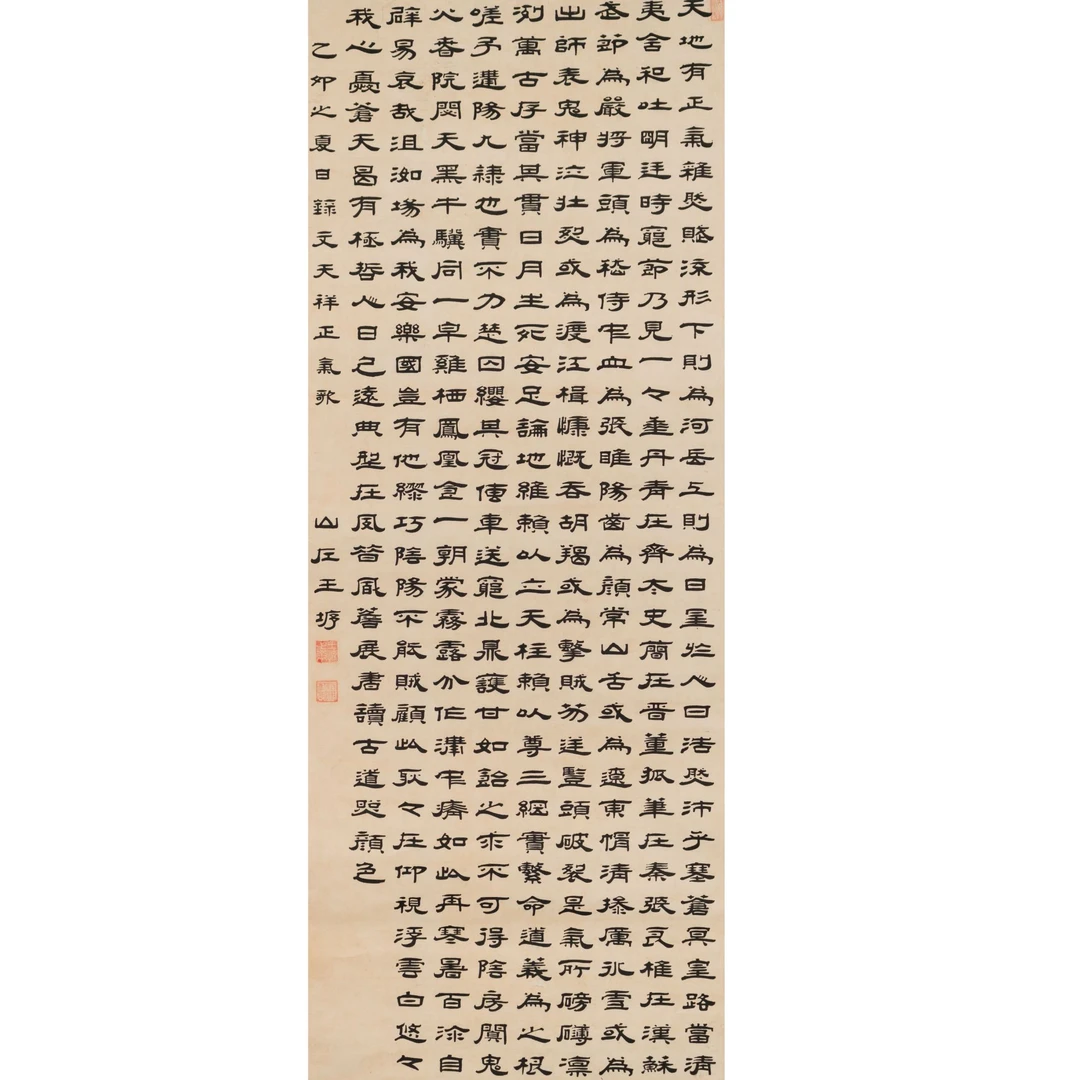 天地有正氣雜然賦流形下則為河岳上則為日星於人曰浩然沛乎塞蒼冥皇路當清
夷含和吐明廷時窮節乃見一々垂丹青在齊太史簡在晉董狐筆在秦張良椎在漢蘇
武節為嚴將軍頭為嵇侍中血為張睢陽齒為顏常山舌或為遼東帽清操厲冰雪或為
出師表鬼神泣壯烈或為渡江楫慷慨吞胡羯或為擊賊笏逆豎頭破裂是氣所磅礴凜
冽萬古存當其貫日月生死安足論地維賴以立天柱賴以尊三綱實繫命道義為之根
嗟予遘陽九隸也實不力楚囚纓其冠傳車送窮北鼎鑊甘如飴之求不可得陰房闃鬼
火春院閟天黑牛驥同一皁雞栖鳳凰食一朝蒙霧露分作溝中瘠如此再寒暑百沴自
辟易哀哉沮洳場為我安樂國豈有他繆巧陰陽不能賊顧此耿々在仰視浮雲白悠々
我心憂蒼天曷有極哲人日已遠典型在夙昔風簷展書讀古道照顏色
乙卯之夏日錄文天祥正氣歌 山左王垿